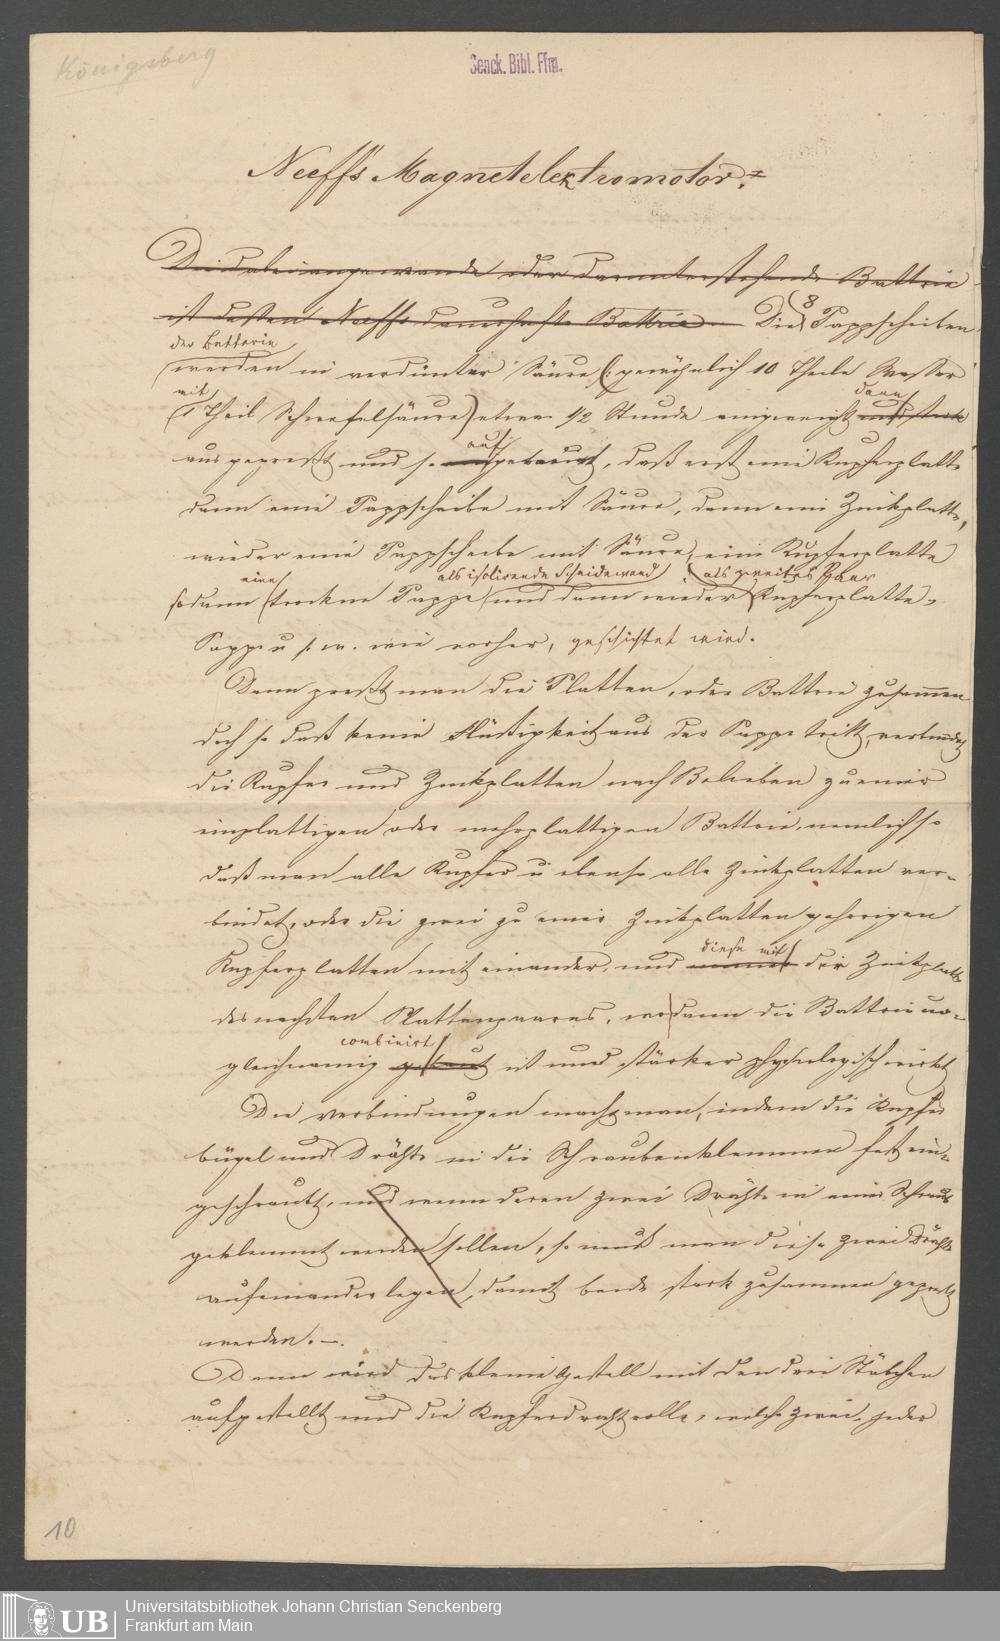 Königsberg
Senck. Bibl. Ffm.
Neeff's Magnetelektromotor.
oder darunterstehende Battrie
ist dessen Neeffs dauerhafte Battrie Die 8 Pappscheiben
der Batterie
werden in verdünter Säure (: gewöhnlich 10 Theile Wasser
mit dann
1 Theil Schwefelsäure) etwa 1/2 Stunde eingeweicht
auf
ausgepreßt und so gebaut, daß erst eine Kupferplatte
dann eine Pappscheibe mit Säure, dann eine Zinkplatte,
wieder eine Pappscheibe mit Säure, eine Kupferplatte
eine als isolirende Scheidewand als zweites Paar
sodann trockne Pappe und dann wieder Kupferplatte,
Pappe u. s. w. wie vorher, geschichtet wird.
Dann preßt man die Platten, oder Battrie zusammen
doch so daß keine Flüßigkeit aus der Pappe tritt, verbindet
die Kupfer und Zinkplatten nach Belieben zu einer
einplattigen oder mehrplattigen Battrie, nemlich so
daß man alle Kupfer u ebenso alle Zinkplatten ver-
bindet, oder die zwei zu einer Zinkplatten gehörigen
diese mit
Kupferplatten mit einander, und der Zinkplatte
des nechsten Plattenpaares, wo dann die Battrie un-
combinirt
gleichnamig gebaut ist und stärker physiologisch wirkt
Die verbindungen macht man, indem die Kupfer
bügel und Drähte in die Schraubenklemmen fest ein-
geschraubt, und wenn deren zwei Drähte in eine Schraube
geklemmt werden sollen, so muß man diese zwei Drähte
aufeinander legen, damit beide stark zusammen gepreßt
werden. –
Dann wird das kleine Gestell mit den drei Stäbchen
aufgestellt und die Kupferdrahtrolle, welche zwei, jeder
10
UB
Universitätsbibliothek Johann Christian Senckenberg
Frankfurt am Main